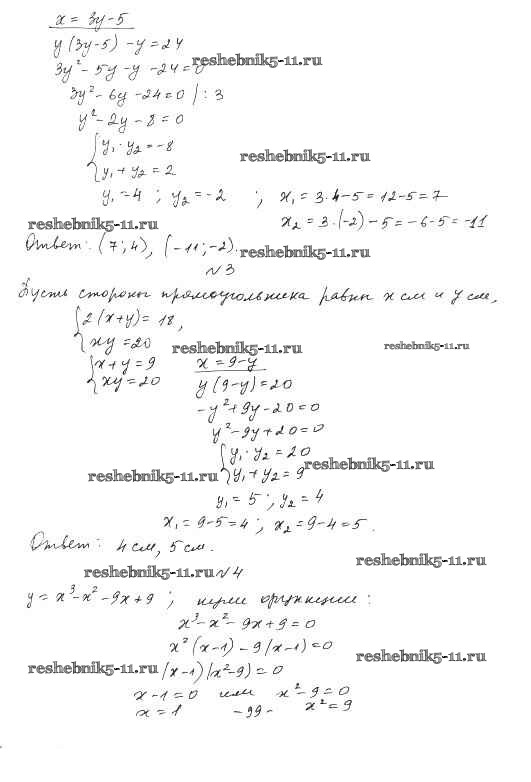 x = 3y-5
y(3y-5)-y=24
3y²-5y-y-24=0 reshebnik5-11.ru
3y²-6y-24=0 | :3
y²-2y-8=0
{y₁·y₂=-8 reshebnik5-11.ru
y₁+y₂=2
y₁=4; y₂=-2; x₁=3·4-5=12-5=7
reshebnik5-11.ru x₂=3·(-2)-5=-6-5=-11
Ответ: (7;4), (-11;-2). reshebnik5-11.ru
№3
Пусть стороны прямоугольника равны x см и y см,
{2(x+y)=18,
xy=20 reshebnik5-11.ru reshebnik5-11.ru
{x+y=9 x=9-y
xy=20 y(9-y)=20
-y²+9y-20=0
y²-9y+20=0
{y₁·y₂=20
reshebnik5-11.ru y₁+y₂=9 reshebnik5-11.ru
y₁=5; y₂=4
x₁=9-5=4; x₂=9-4=5.
Ответ: 4 см, 5 см.
reshebnik5-11.ru №4 reshebnik5-11.ru
y=x³-x²-9x+9; нули функции:
x³-x²-9x+9=0
x²(x-1)-9(x-1)=0
reshebnik5-11.ru (x-1)(x²-9)=0 reshebnik5-11.ru
x-1=0 или x²-9=0
x=1 -99- x²=9